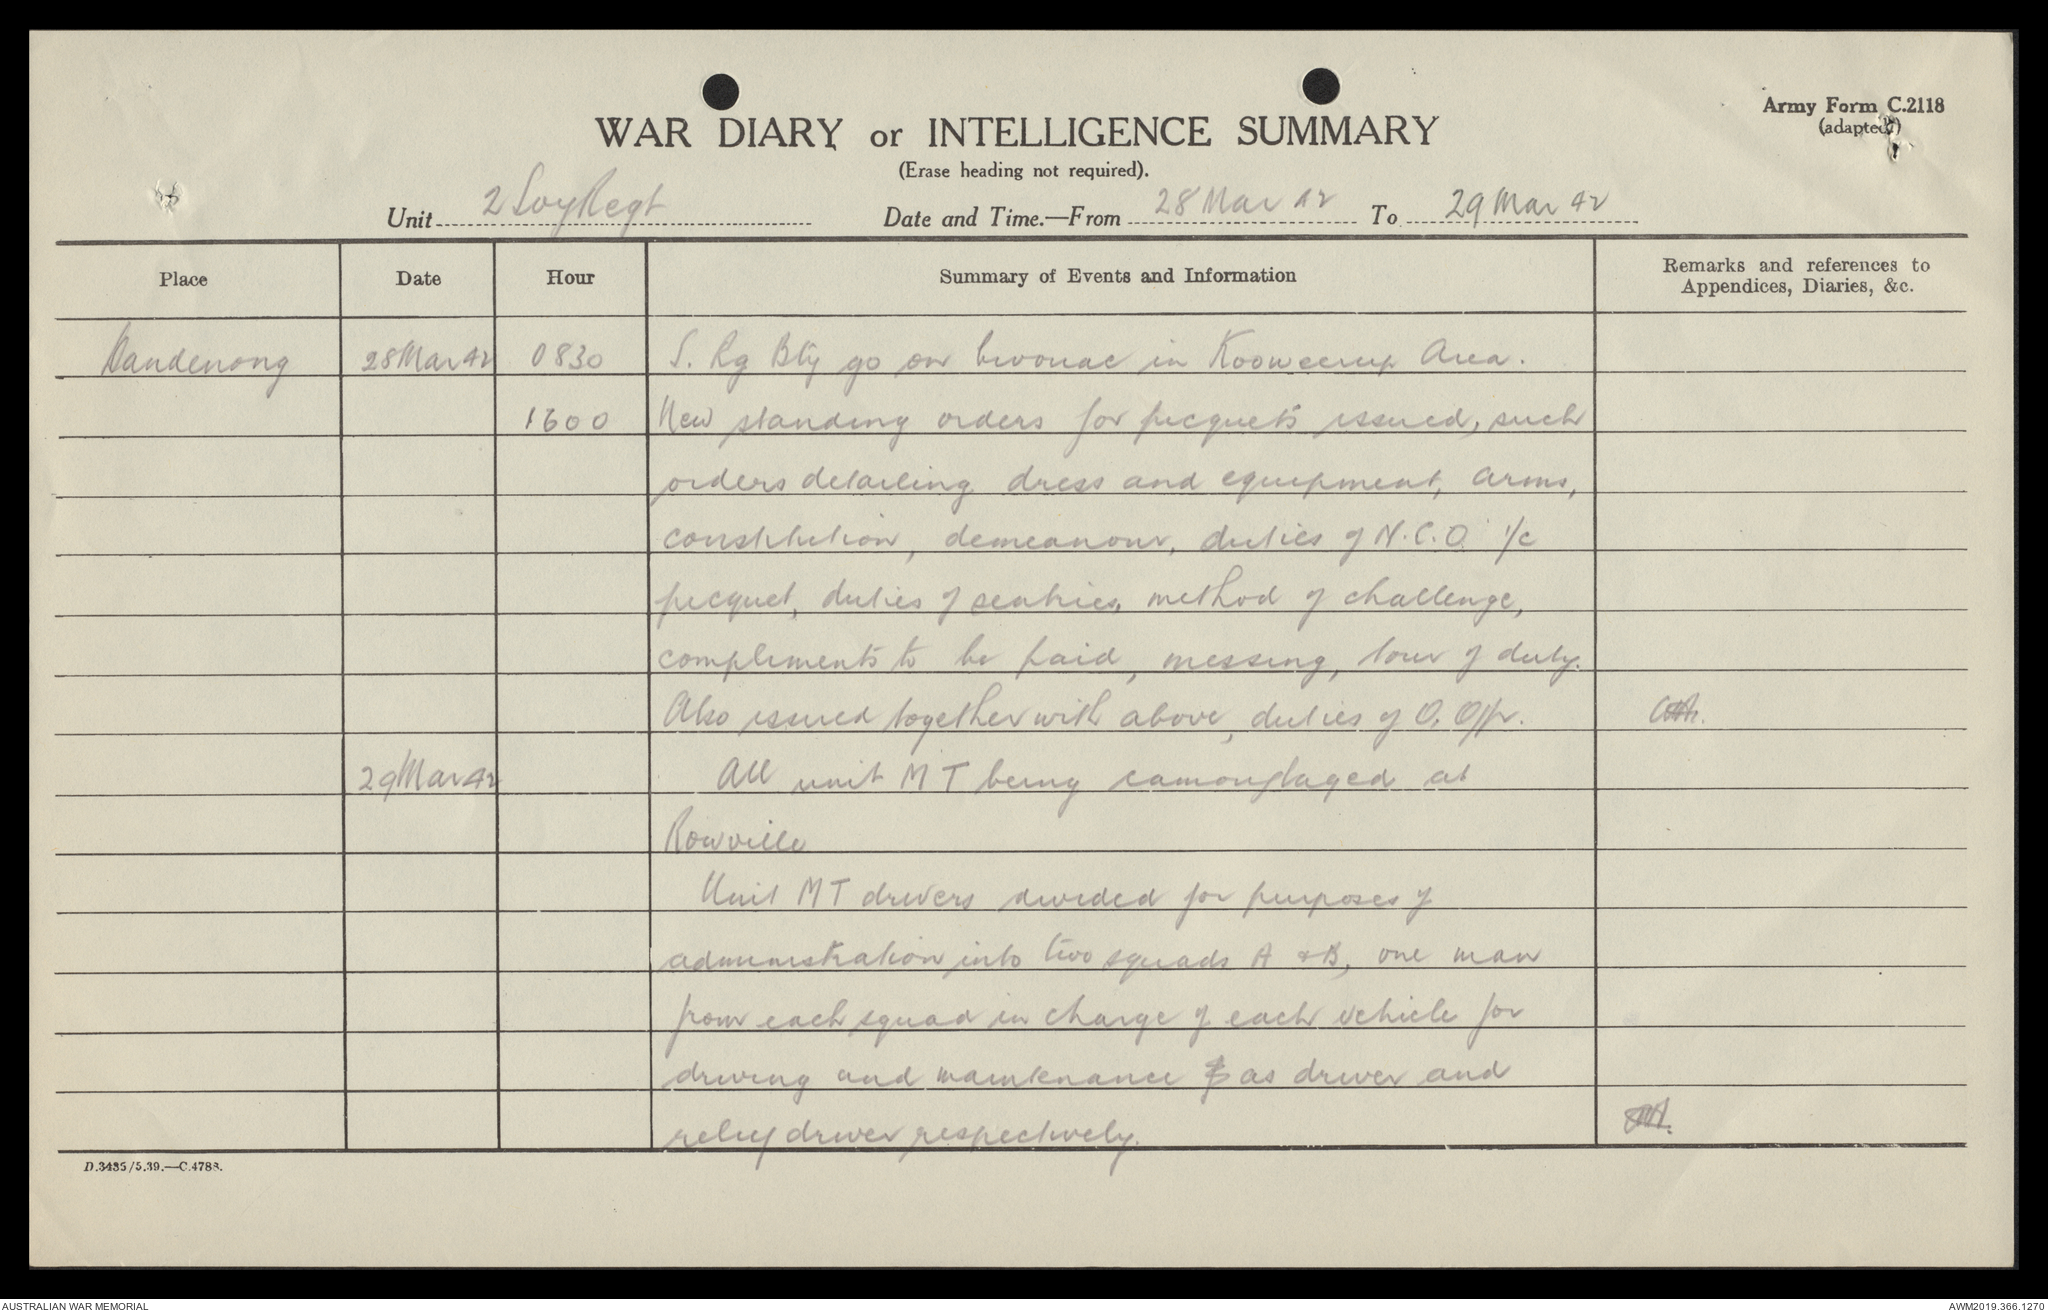 Army Form C.2118
(adapted)
WAR DIARY or INTELLIGENCE SUMMARY
(Erase heading not required).
Unit 2 Svy Regt Date and Time.—From 28 Mar 42 To 29 Mar 42
Place Date Hour Summary of Events and Information Remarks and references to
Appendices, Diaries, &c.
Dandenong 28 Mar 42 0830 S. Rg Bty go on bivouac in Kooweerup Area.
1600 New standing orders for picquets issued, such
orders detailing dress and equipment, arms,
constitution, demeanour, duties of N.C.O. i/c
picquet, duties of sentries, method of challenge,
compliments to be paid, messing, tour of duty.
Also issued together with above, duties of O. Offr.
29 Mar 42 All unit MT being camouflaged at
Rowville
Unit MT drivers divided for purposes of
administration into two squads A & B, one man
from each squad in charge of each vehicle for
driving and maintenance as driver and
relief driver respectively.
D.3435/5.39.—C.4788.
AUSTRALIAN WAR MEMORIAL AWM2019.366.1270